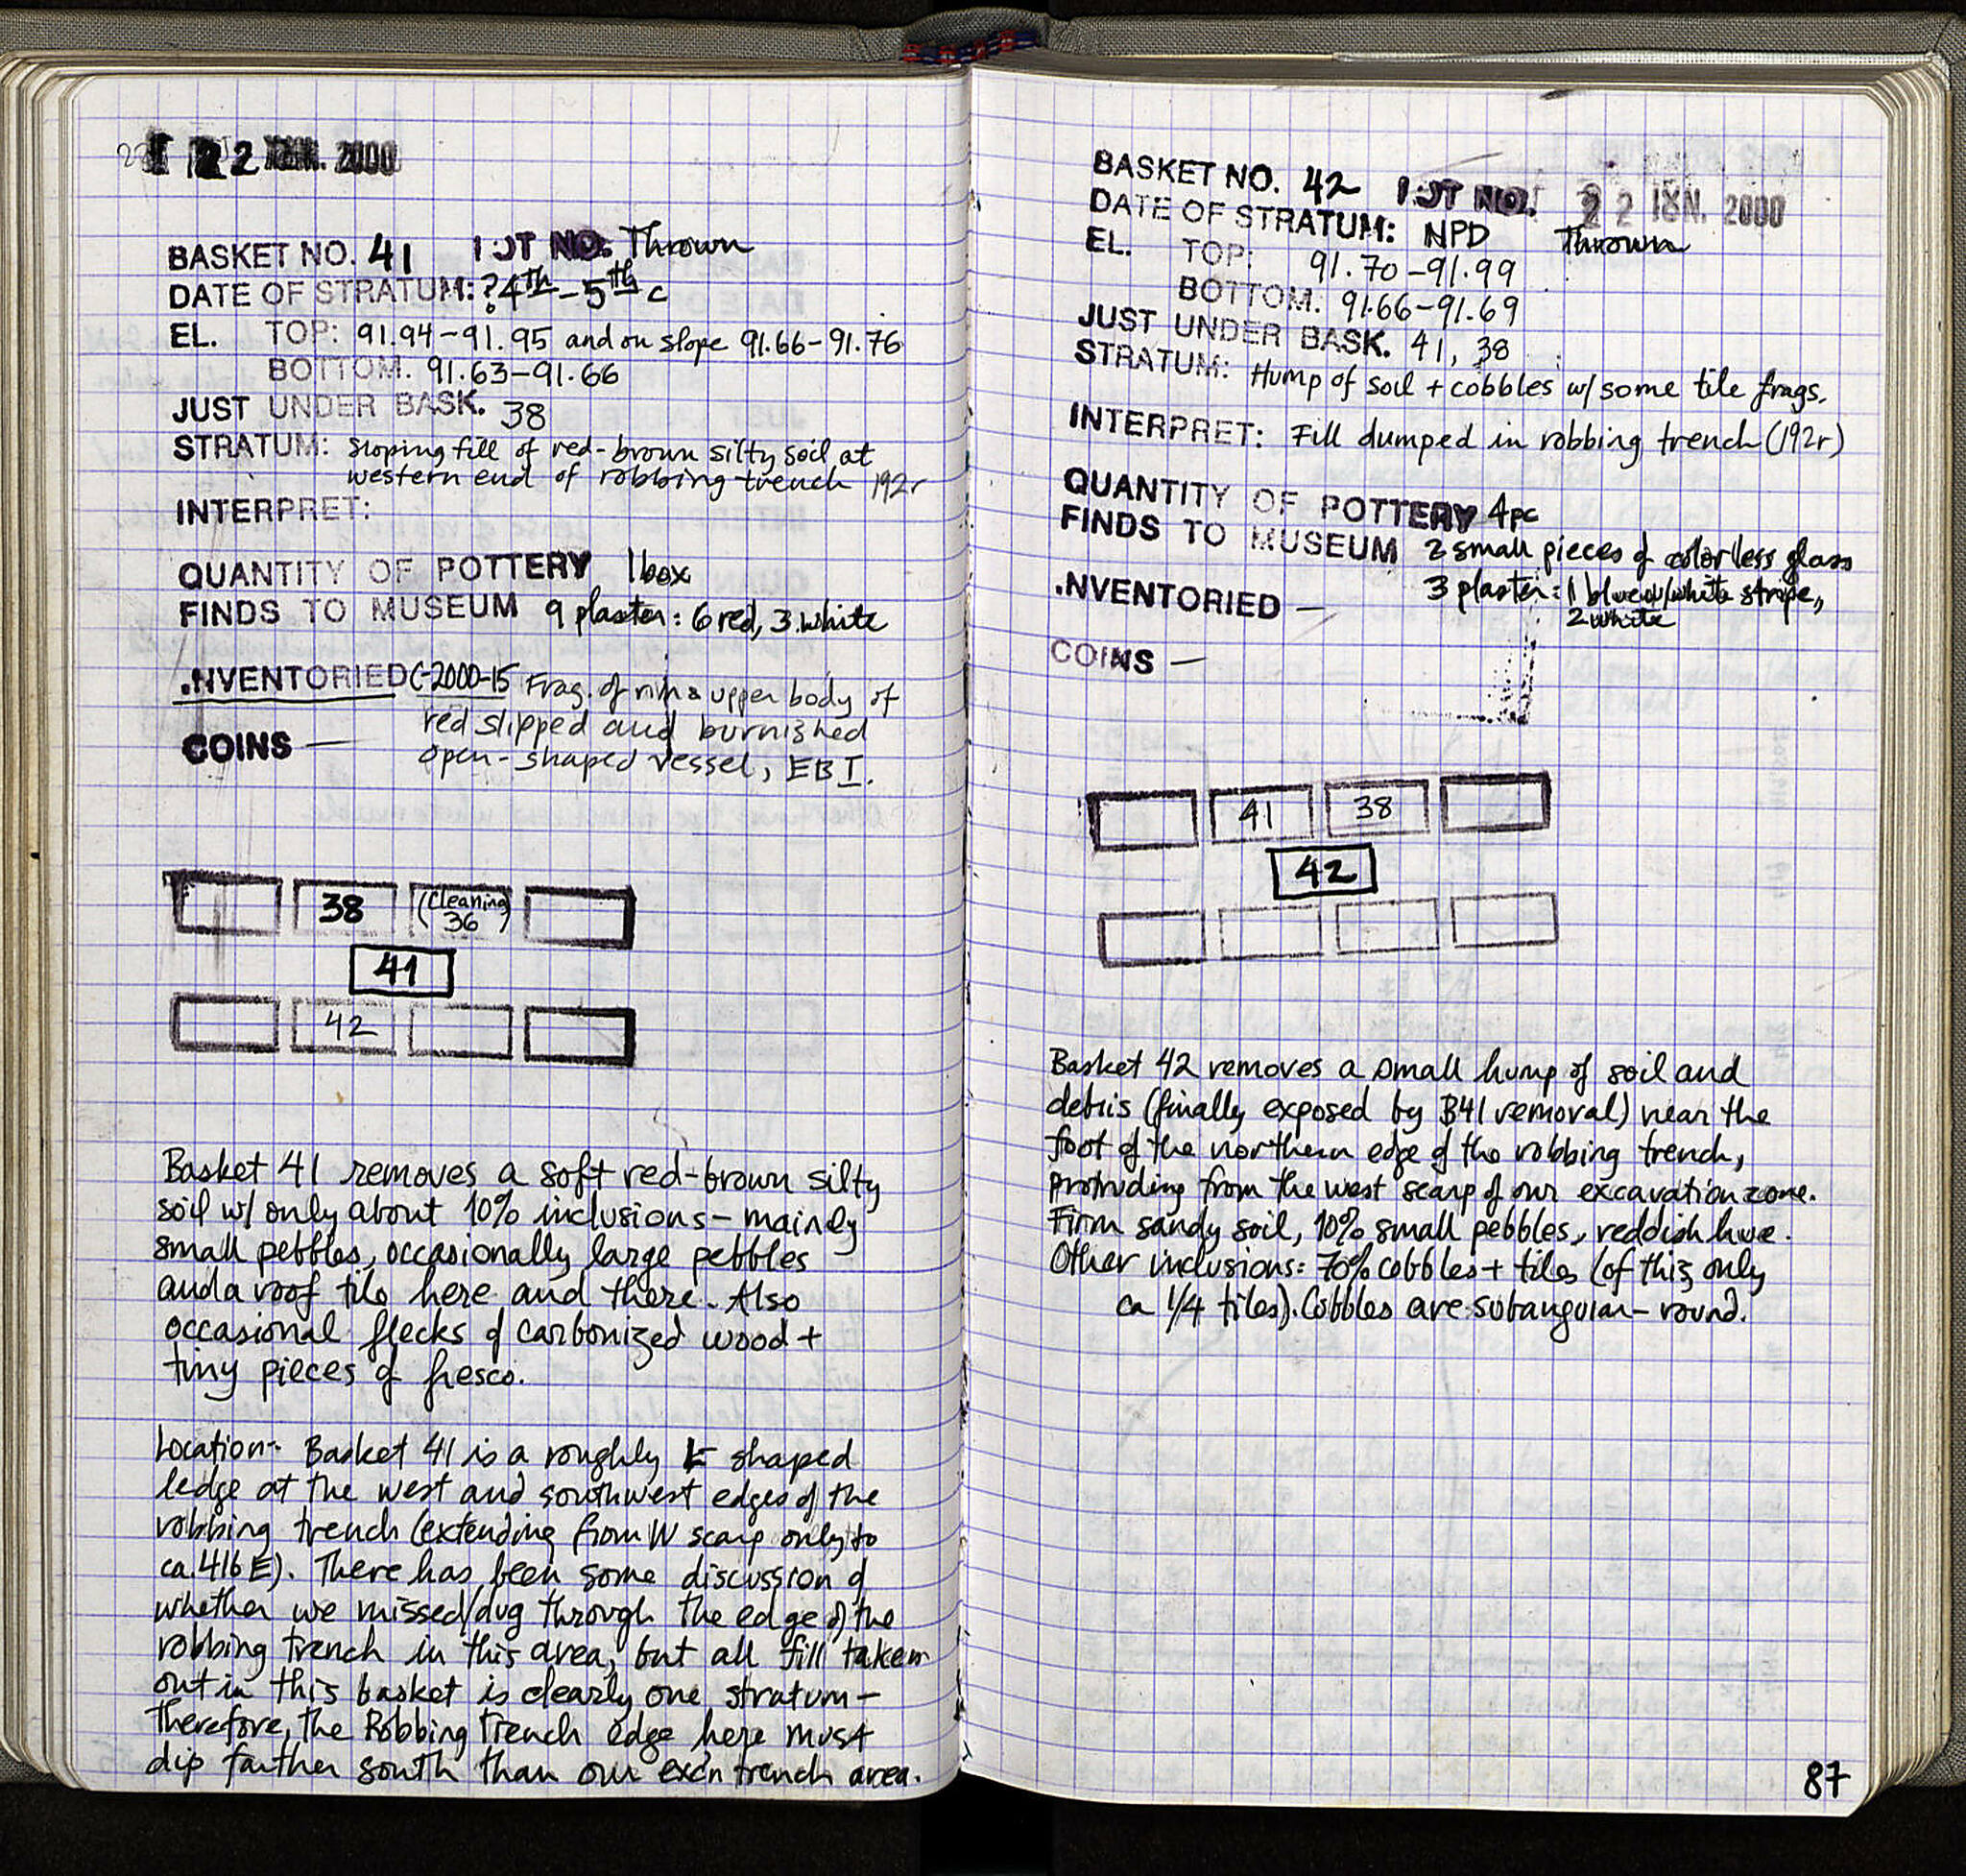 22 JUN. 2000
BASKET NO. 41 LOT NO. Thrown
DATE OF STRATUM: ? 4th - 5th c
EL. TOP: 91.94-91.95 and on slope 91.66-91.76
BOTTOM. 91.63-91.66
JUST UNDER BASK. 38
STRATUM: sloping fill of red-brown silty soil at
western end of robbing trench 192r
INTERPRET:
QUANTITY OF POTTERY 1 box
FINDS TO MUSEUM 9 plaster: 6 red, 3 white
.NVENTORIED C-2000-15 Frag. of rim & upper body of
red slipped and burnished
open-shaped vessel, EB I.
COINS —
38 (Cleaning 36)
41
42
Basket 41 removes a soft red-brown silty
soil w/ only about 10% inclusions - mainly
small pebbles, occasionally large pebbles
and a roof tile here and there. Also
occasional flecks of carbonized wood +
tiny pieces of fresco.
Location:- Basket 41 is a roughly L shaped
ledge at the west and southwest edges of the
robbing trench (extending from W scarp only to
ca. 416 E). There has been some discussion of
whether we missed/dug through the edge of the
robbing trench in this area, but all fill taken
out in this basket is clearly one stratum -
therefore, the Robbing Trench edge here must
dip farther south than our exc'n trench area.
BASKET NO. 42 LOT NO. 22 JUN. 2000
DATE OF STRATUM: NPD Thrown
EL. TOP: 91.70-91.99
BOTTOM: 91.66-91.69
JUST UNDER BASK. 41, 38
STRATUM: Hump of soil + cobbles w/ some tile frags.
INTERPRET: Fill dumped in robbing trench (192r)
QUANTITY OF POTTERY 4pc
FINDS TO MUSEUM 2 small pieces of colorless glass
3 plaster: 1 blue w/white stripe,
2 white
.NVENTORIED —
COINS —
41 38
42
Basket 42 removes a small hump of soil and
debris (finally exposed by B41 removal) near the
foot of the northern edge of the robbing trench,
protruding from the west scarp of our excavation zone.
Firm sandy soil, 10% small pebbles, reddish hue.
Other inclusions: 70% cobbles + tiles (of this only
ca 1/4 tiles). Cobbles are subangular - round.
87